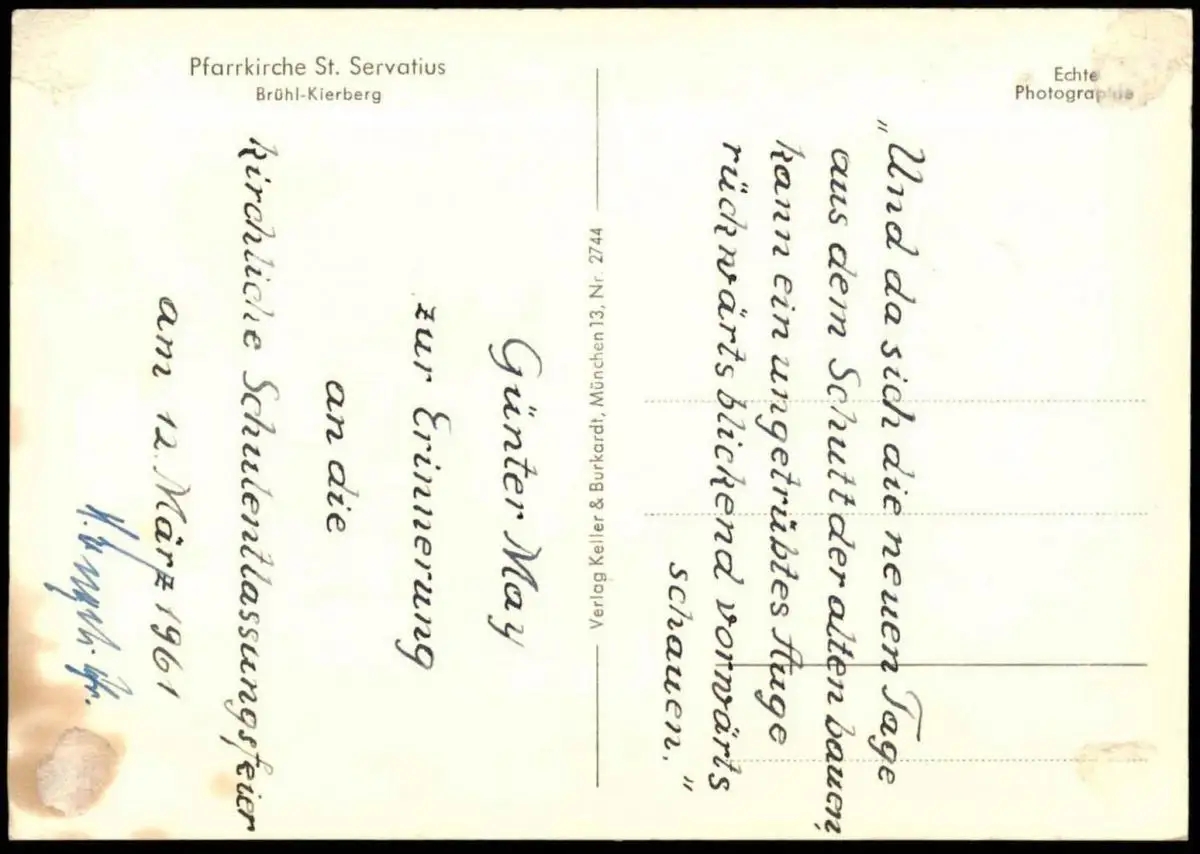 Pfarrkirche St. Servatius
Brühl-Kierberg
Echte
Photographie
„Und da sich die neuen Tage
aus dem Schutt der alten bauen,
kann ein ungetrübtes Auge
rückwärts blickend vorwärts
schauen."
Verlag Keller & Burkardt, München 13, Nr. 2744
Günter May
zur Erinnerung
an die
kirchliche Schulentlassungsfeier
am 12. März 1961